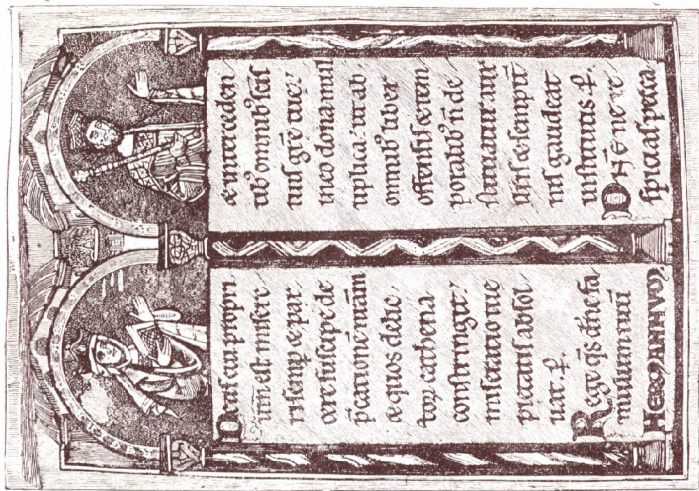 Deus cui propri
um est misere
ri semp & par
cere suscipe de
p̄cationē nr̄am
& quos delic
toꝝ cathena
constringit
miseratio tue
pietatis absol
uat. P.
Rege qs dn̄e fa
mulum tuū
HERMANNVM
& interceden
tibꝰ omnibꝰ scīs
tuis grē tuę
in eo dona mul
tiplica. ut ab
omnibꝰ liber
offensis & tem
poralibꝰ n̄ de
stituatur aux
iliis & sempit̄
nis gaudeat
institutis. P.
ne re
spicias pecca